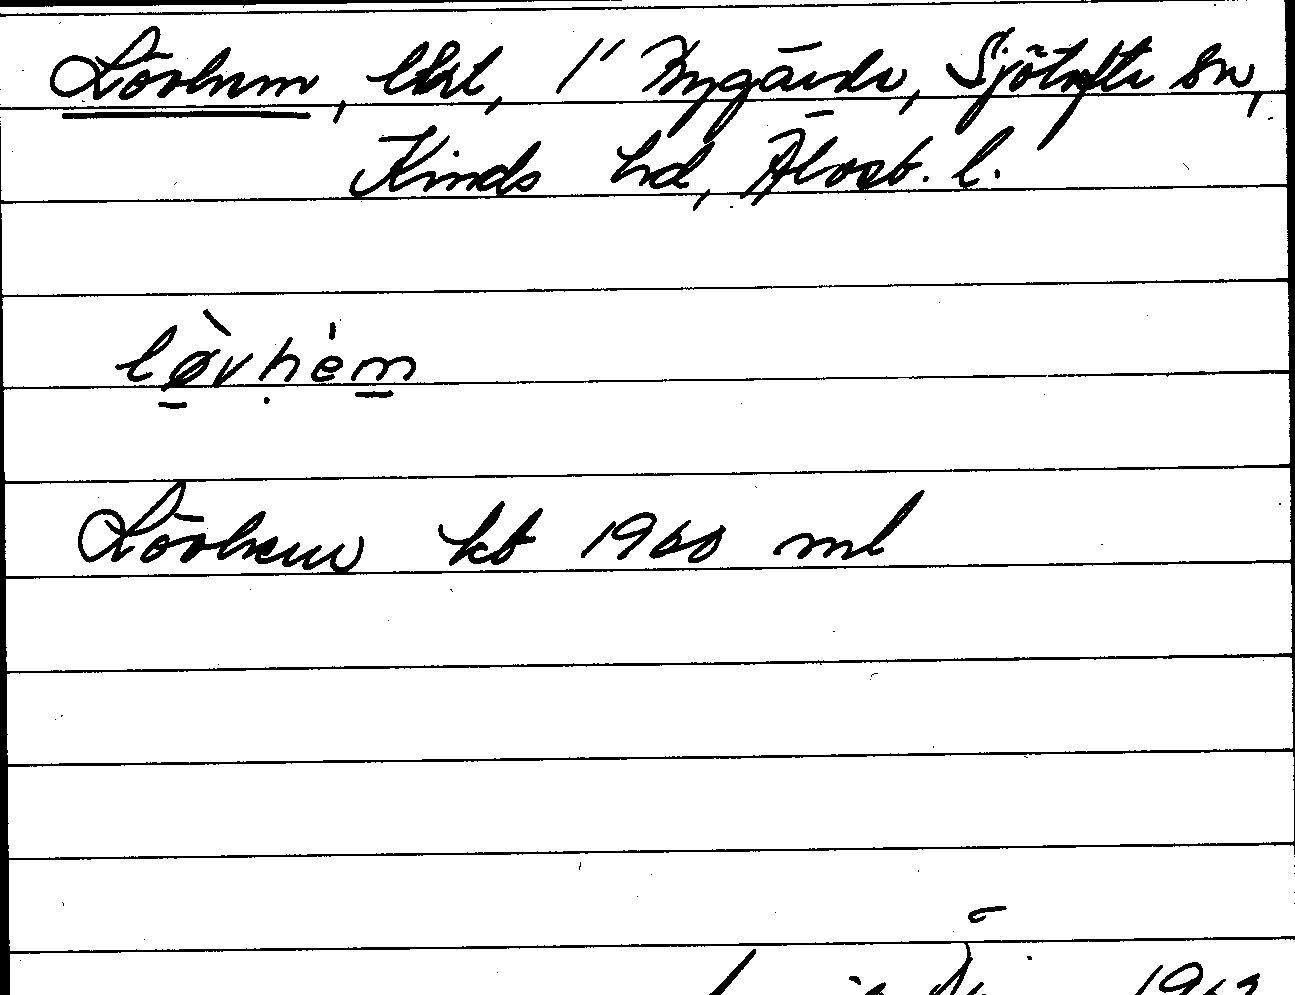 Lövhem, lht, 1" Nygärde, Sjötofta sn,
Kinds hd, Älvsb. l.
lø̀vhém
Lövhem kb 1960 ml